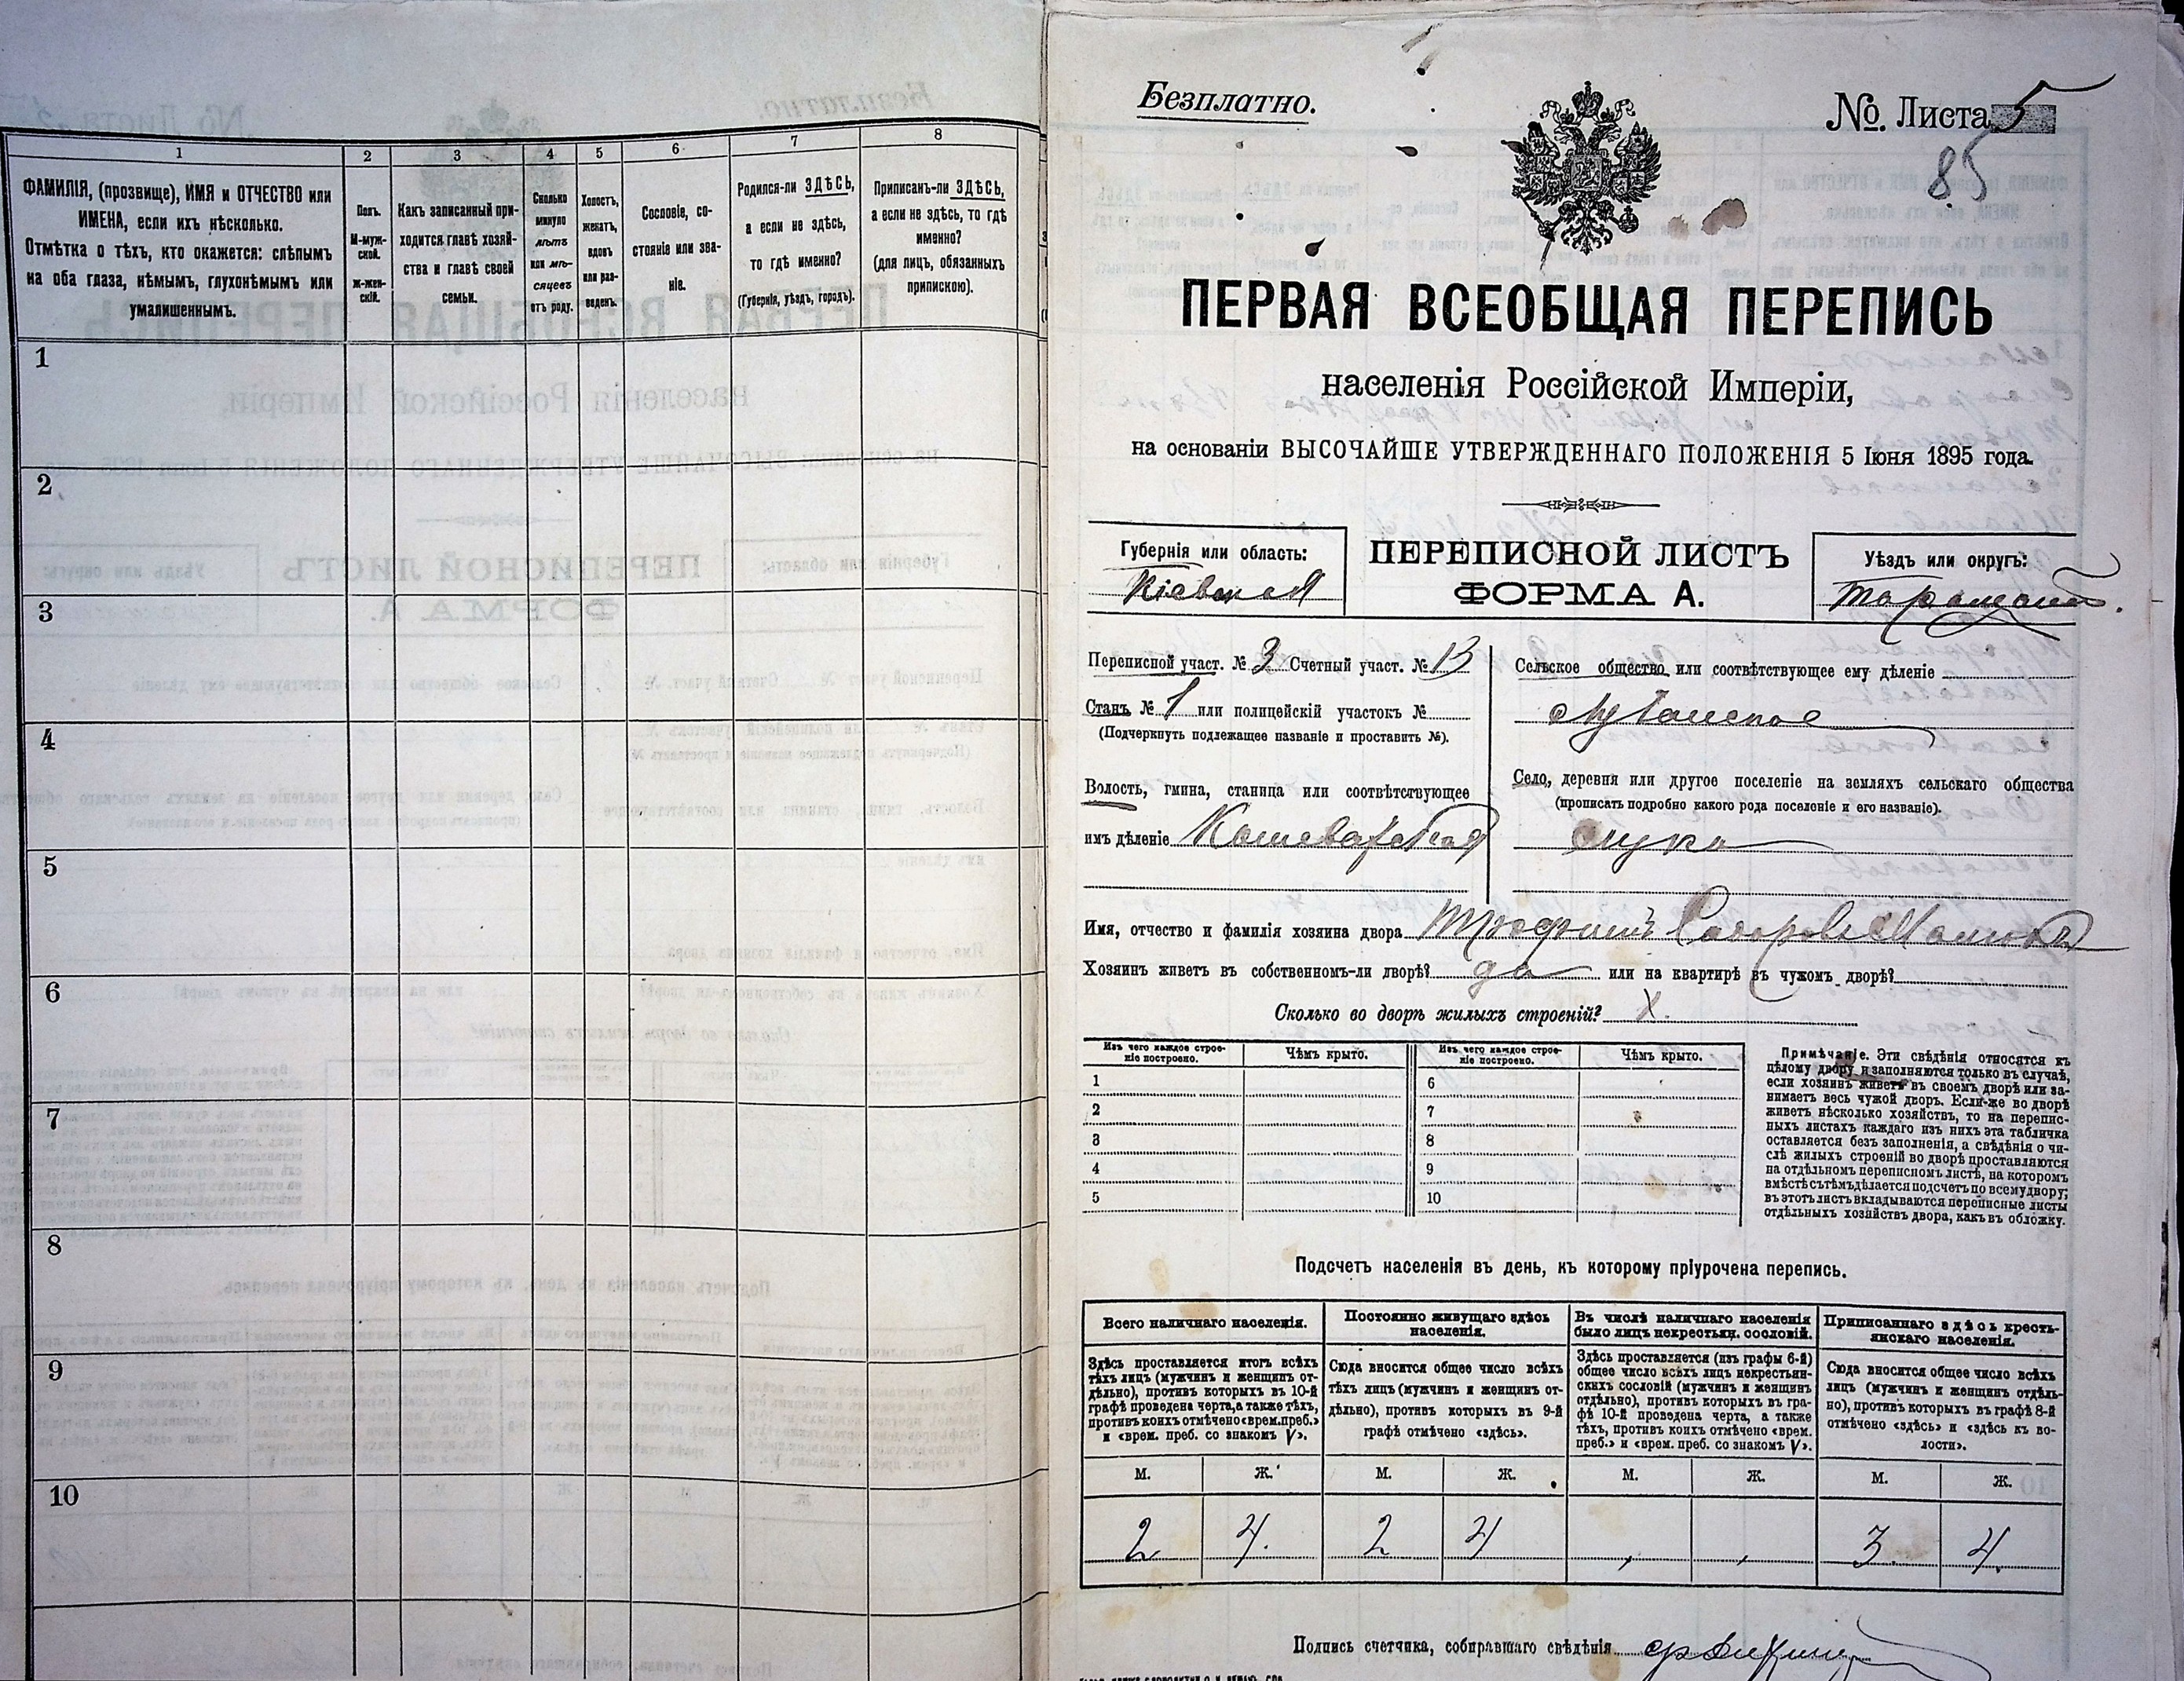 1
2
3
4
5
6
7
8
ФАМИЛІЯ, (прозвище), ИМЯ и ОТЧЕСТВО или
ИМЕНА, если ихъ нѣсколько.
Отмѣтка о тѣхъ, кто окажется: слѣпымъ
на оба глаза, нѣмымъ, глухонѣмымъ или
умалишеннымъ.
Полъ.
М-муж-
ской.
Ж-жен-
скій.
Какъ записанный при-
ходится главѣ хозяй-
ства и главѣ своей
семьи.
Сколько
минуло
лѣтъ
или мѣ-
сяцевъ
отъ роду.
Холостъ,
женатъ,
вдовъ
или раз-
веденъ.
Сословіе, со-
стояніе или зва-
ніе.
Родился-ли ЗДѢСЬ,
а если не здѣсь,
то гдѣ именно?
(Губернія, уѣздъ, городъ).
Приписанъ-ли ЗДѢСЬ,
а если не здѣсь, то гдѣ
именно?
(для лицъ, обязанныхъ
припискою).
1
2
3
4
5
6
7
8
9
10
Безплатно.
№ Листа 5
85
ПЕРВАЯ ВСЕОБЩАЯ ПЕРЕПИСЬ
населенія Россійской Имперіи,
на основаніи ВЫСОЧАЙШЕ УТВЕРЖДЕННАГО ПОЛОЖЕНІЯ 5 Іюня 1895 года.
Губернія или область:
Кіевская
ПЕРЕПИСНОЙ ЛИСТЪ
ФОРМА А.
Уѣздъ или округъ:
Таращанс.
Переписной участ. № 3 Счетный участ. № 13
Станъ № 1 или полицейскій участокъ №
(Подчеркнуть подлежащее названіе и проставить №).
Волость, гмина, станица или соотвѣтствующее
имъ дѣленіе Кошеватская
Сельское общество или соотвѣтствующее ему дѣленіе
Лучанское
Село, деревня или другое поселеніе на земляхъ сельскаго общества
(прописать подробно какого рода поселеніе и его названіе).
Имя, отчество и фамилія хозяина двора Трофимъ
Хозяинъ живетъ въ собственномъ-ли дворѣ? да или на квартирѣ въ чужомъ дворѣ?
Сколько во дворѣ жилыхъ строеній? X.
Изъ чего каждое строе-
ніе построено.
Чѣмъ крыто.
Изъ чего каждое строе-
ніе построено.
Чѣмъ крыто.
1
2
3
4
5
6
7
8
9
10
Примѣчаніе. Эти свѣдѣнія относятся къ
цѣлому двору и заполняются только въ случаѣ,
если хозяинъ живетъ въ своемъ дворѣ или за-
нимаетъ весь чужой дворъ. Если-же во дворѣ
живетъ нѣсколько хозяйствъ, то на перепис-
ныхъ листахъ каждаго изъ нихъ эта табличка
оставляется безъ заполненія, а свѣдѣнія о чи-
слѣ жилыхъ строеній во дворѣ проставляются
на отдѣльномъ переписномъ листѣ, на которомъ
вмѣстѣ съ тѣмъ дѣлается подсчетъ по всему двору;
въ этотъ листъ вкладываются переписные листы
отдѣльныхъ хозяйствъ двора, какъ въ обложку.
Подсчетъ населенія въ день, къ которому пріурочена перепись.
Всего наличнаго населенія.
Постоянно живущаго здѣсь
населенія.
Въ числѣ наличнаго населенія
было лицъ некрестьян. сословій.
Приписаннаго здѣсь кресть-
янскаго населенія.
Здѣсь проставляется итогъ всѣхъ
тѣхъ лицъ (мужчинъ и женщинъ от-
дѣльно), противъ которыхъ въ 10-й
графѣ проведена черта, а также тѣхъ,
противъ коихъ отмѣчено «врем. преб.»
и «врем. преб. со знакомъ V».
Сюда вносится общее число всѣхъ
тѣхъ лицъ (мужчинъ и женщинъ от-
дѣльно), противъ которыхъ въ 9-й
графѣ отмѣчено «здѣсь».
Здѣсь проставляется (изъ графы 6-й)
общее число всѣхъ лицъ некрестьян-
скихъ сословій (мужчинъ и женщинъ
отдѣльно), противъ которыхъ въ гра-
фѣ 10-й проведена черта, а также
тѣхъ, противъ коихъ отмѣчено «врем.
преб.» и «врем. преб. со знакомъ V».
Сюда вносится общее число всѣхъ
лицъ (мужчинъ и женщинъ отдѣль-
но), противъ которыхъ въ графѣ 8-й
отмѣчено «здѣсь» и «здѣсь къ во-
лости».
М. Ж. М. Ж. М. Ж. М. Ж.
2 4. 2 4 , , 3 4
Подпись счетчика, собиравшаго свѣдѣнія